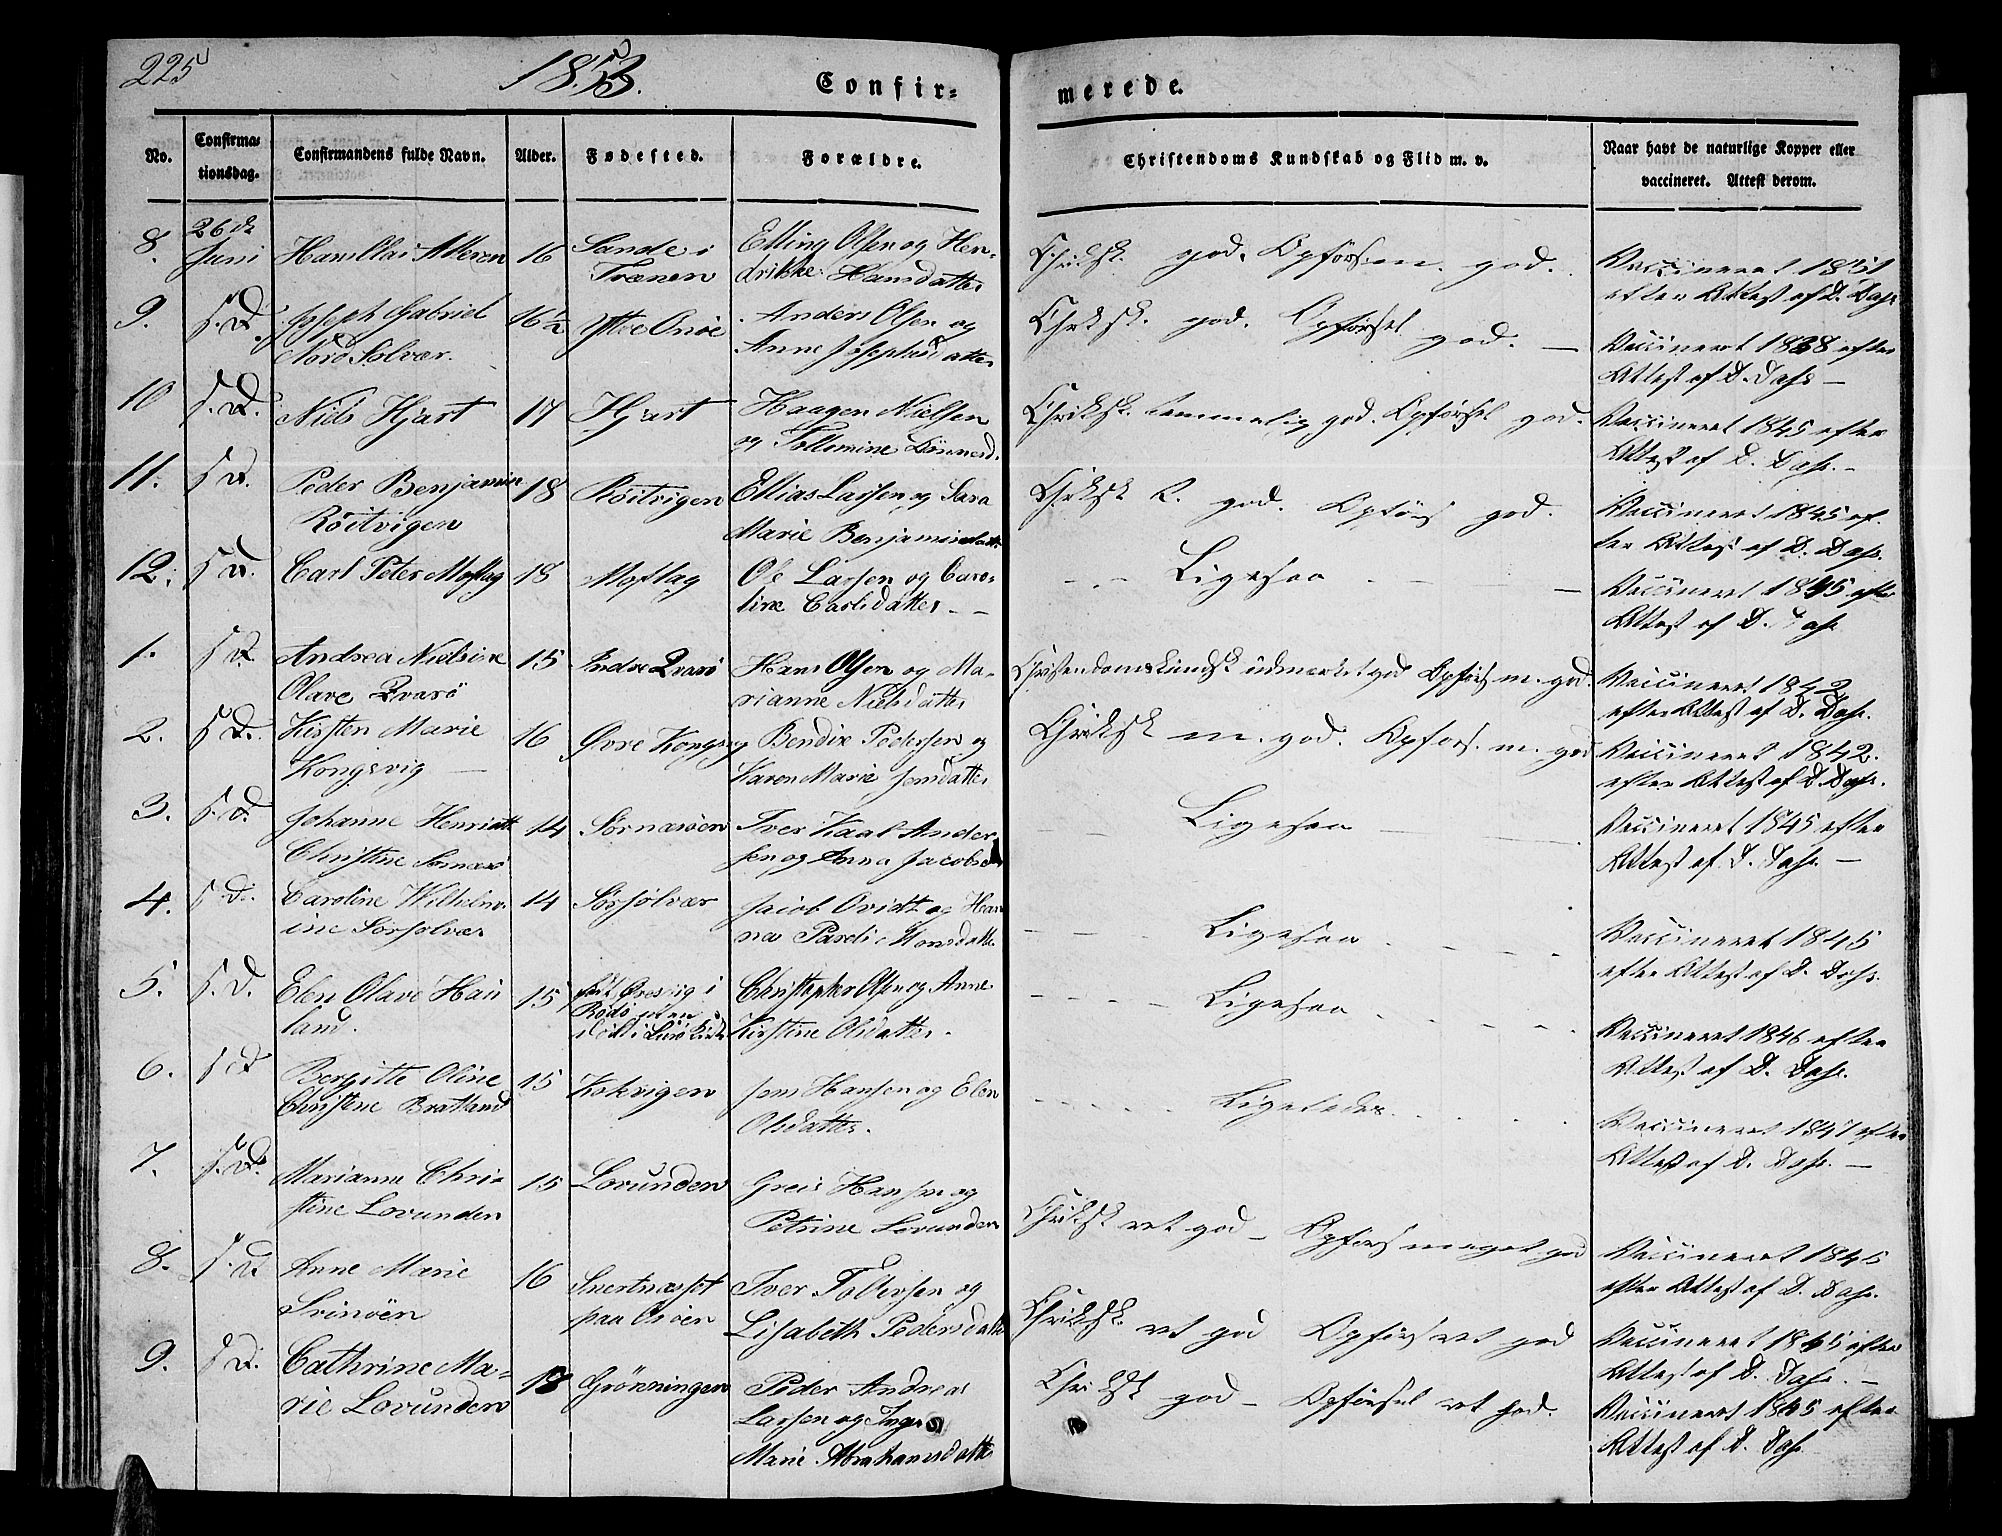 225
1853.
Confir-
merede.
No.
Confirma-
tionsdag.
Confirmandens fulde Navn.
Alder.
Fødested.
Forældre.
Christendoms Kundskab og Flid m. v.
Naar havt de naturlige Kopper eller
vaccineret. Attest derom.
8. 26de Juni Alteren 16 Sande i Trænen Elling Olsen og Hendrikke Hansdatter
Chrdsk. god. Opførs. m. god.
Vaccineret 1851 efter Attest af D. Dahs
9. s. D. Joseph Gabriel Nord Solvær. 16½ Ytre Onøe Anders Olsen og Anne Josephsdatter
Chrdsk. god. Opførsel god. —
Vaccineret 1838 efter Attest af D. Dahs —
10 s. D. Niels Hjart 17 Hjart Haagen Nielsen og Tollemine
Chrdsk. temmelig god. Opførsel god.
Vaccineret 1845 efter Attest af D. Dahs. —
11. s. D. Peder Benjamin Røitvigen 18 Røitvigen Ellias Larsen og Sara Marie Benjaminsdatter
Chrdsk t. god. Opførs god.
Vaccineret 1845 efter Attest af D. Dahs.
12. s. D. Carl Peter Moflag 18 Moflag Ole Larsen og Caroline Carlsdatter —
Ligesaa —
Vaccineret 1845 efter Attest af D. Dahs
1. s. D. Andrea Nielsine Olave Qvarø 15 Indre Qvarø Hans Olsen og Marianne Nielsdatter
Christendomskundsk udmærket god Opførs m. god.
Vaccineret 1842 efter Attest af D. Dahs.
2. s. D. Kirsten Marie Kongsvig — 16 Øvre Kongsvig Bendix Pedersen og Karen Marie Jensdatter
Chrdsk m. god. Opførs. m. god
Vaccineret 1842. efter Attest af D. Dahs.
3. s. D. Johanne Henriette Christine Sørnæsø 14 Sørnæsøen Iver Kaal Andersen og Anna Jacobsd
Ligesaa
Vaccineret 1845 efter Attest af D. Dahs. —
4. s. D. Caroline Wilhelmine Sørsolvær 14 Sørsolvær Jacob Qvidt og Hanna Pardie Hansdatter
Ligesaa
Vaccineret 1845 efter Attest af D. Dahs.
5. s. D. Elen Olave Hauland. 15 født Øresvig i Rødø men døbt i Lurø Kirke Christopher Olsen og Anne Kirstine Olsdatter.
Ligesaa
Vaccineret 1846 efter Attest af D. Dahs.
6. s. D. Bergitte Oline Christine Bratland 15 Kokvigen Jens Hansen og Elen Olsdatter.
Ligeledes.
Vaccineret 1847 efter Attest af D. Dahs. —
7. s. D. Marianne Christine Lovunden 15 Lovunden Greis Hansen og Petrine Lovunden
Chrdsk ret god — Opførs meget god
Vaccineret 1845 efter Attest af D. Dahs.
8. s. D. Anne Marie Svinøen 16 Svertnæsset paa Onøen Iver Tollefsen og Lisabeth Pedersdatter
Chrdsk. ret god Opførs ret god
Vaccineret 1845 efter Attest af D. Dahs. —
9. s. D. Cathrine Marie Lovunden 18 Grønningen Peder Andreas Larsen og Inger Marie Abrahamsdatter
Chrdsk god — Opførsel ret god.
Vaccineret 1845 efter Attest af D. Dahs